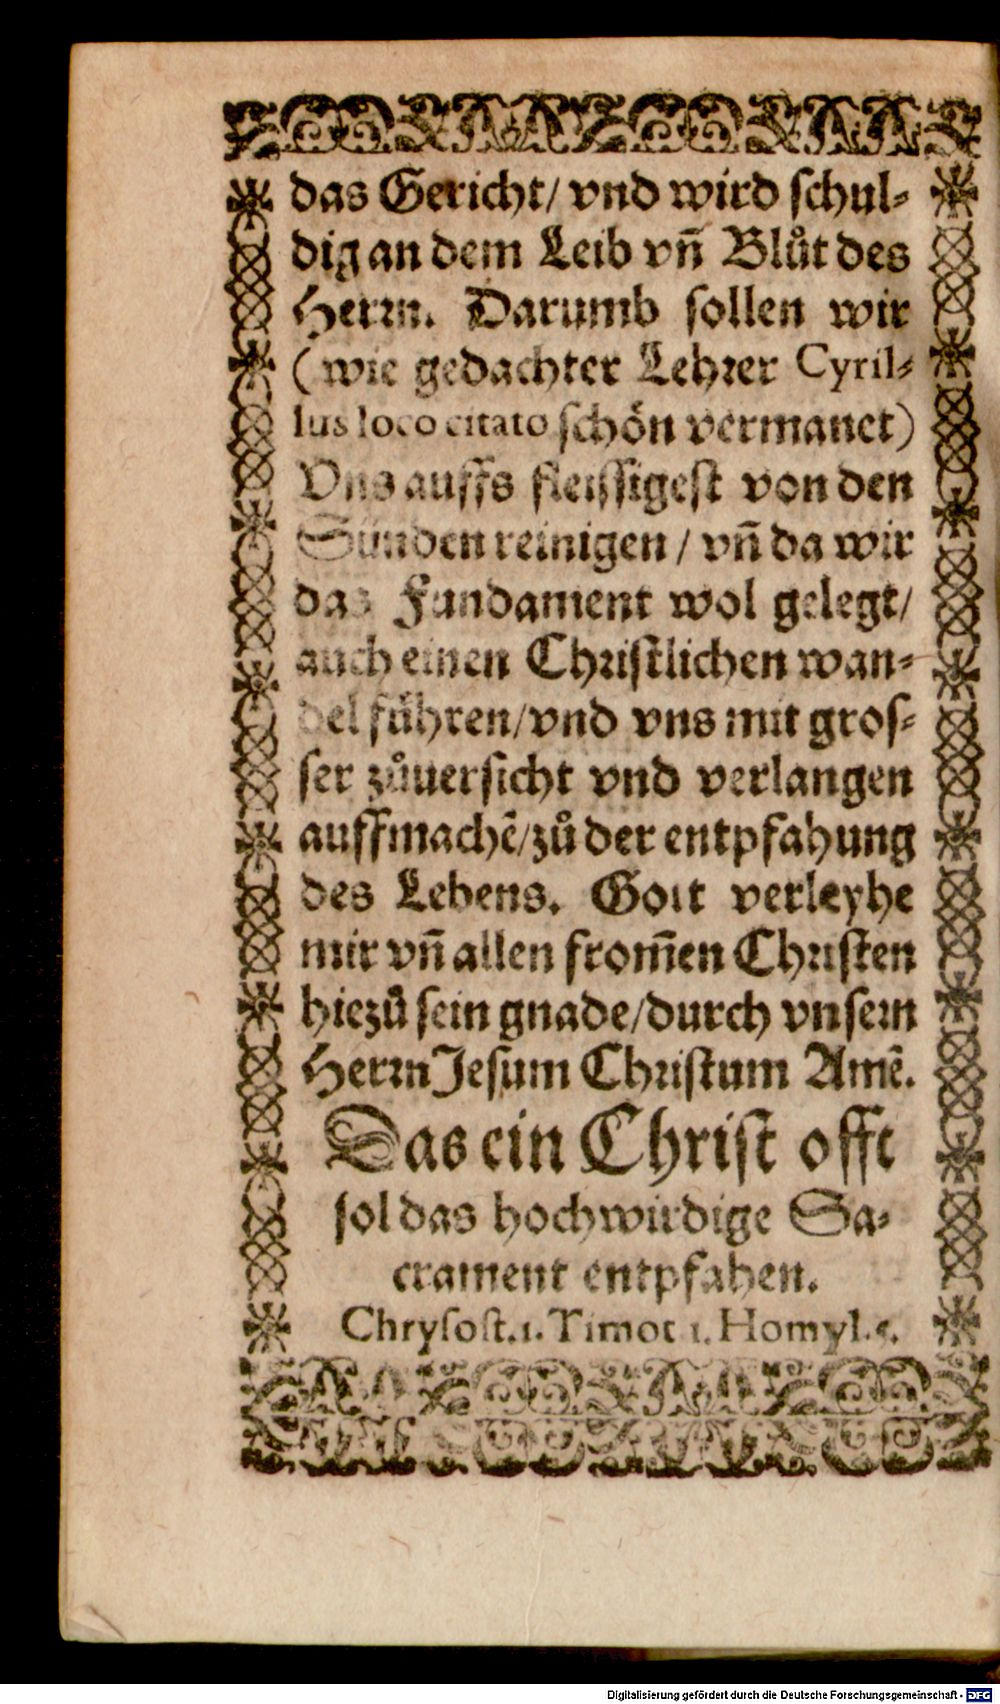 das Gericht/ vnd wird schul-
dig an dem Leib vñ Blůt des
Herrn. Darumb sollen wir
(wie gedachter Lehrer Cyril-
lus loco citato schön vermanet)
Vns auffs fleissigest von den
Sünden reinigen / vñ da wir
das Fundament wol gelegt/
auch einen Christlichen wan-
del führen/vnd vns mit gros-
ser zůuersicht vnd verlangen
auffmachē/zů der entpfahung
des Lebens. Gott verleyhe
mir vñ allen from̃en Christen
hiezů sein gnade/durch vnsern
Herrn Jesum Christum Amē.
Das ein Christ offt
sol das hochwirdige Sa-
crament entpfahen.
Chrysost. 1. Timot 1. Homyl. 5.
Digitalisierung gefördert durch die Deutsche Forschungsgemeinschaft - DFG